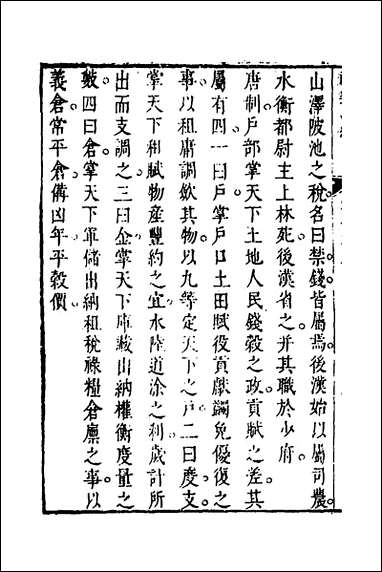 山澤陂池之稅名曰禁錢皆屬焉後漢始以屬司農
水衡都尉主上林死後漢省之并其職於少府
唐制戶部掌天下土地人民錢穀之政貢賦之差其
屬有四一曰戶掌戶口土田賦役貢獻蠲免優復之
事以租庸調歛其物以九等定天下之戶二曰度支
掌天下租賦物產豐約之宜水陸道涂之利歲計所
出而支調之三曰金掌天下庫藏出納權衡度量之
數四曰倉掌天下軍儲出納租稅祿糧倉廪之事以
義倉常平倉備凶年平穀價